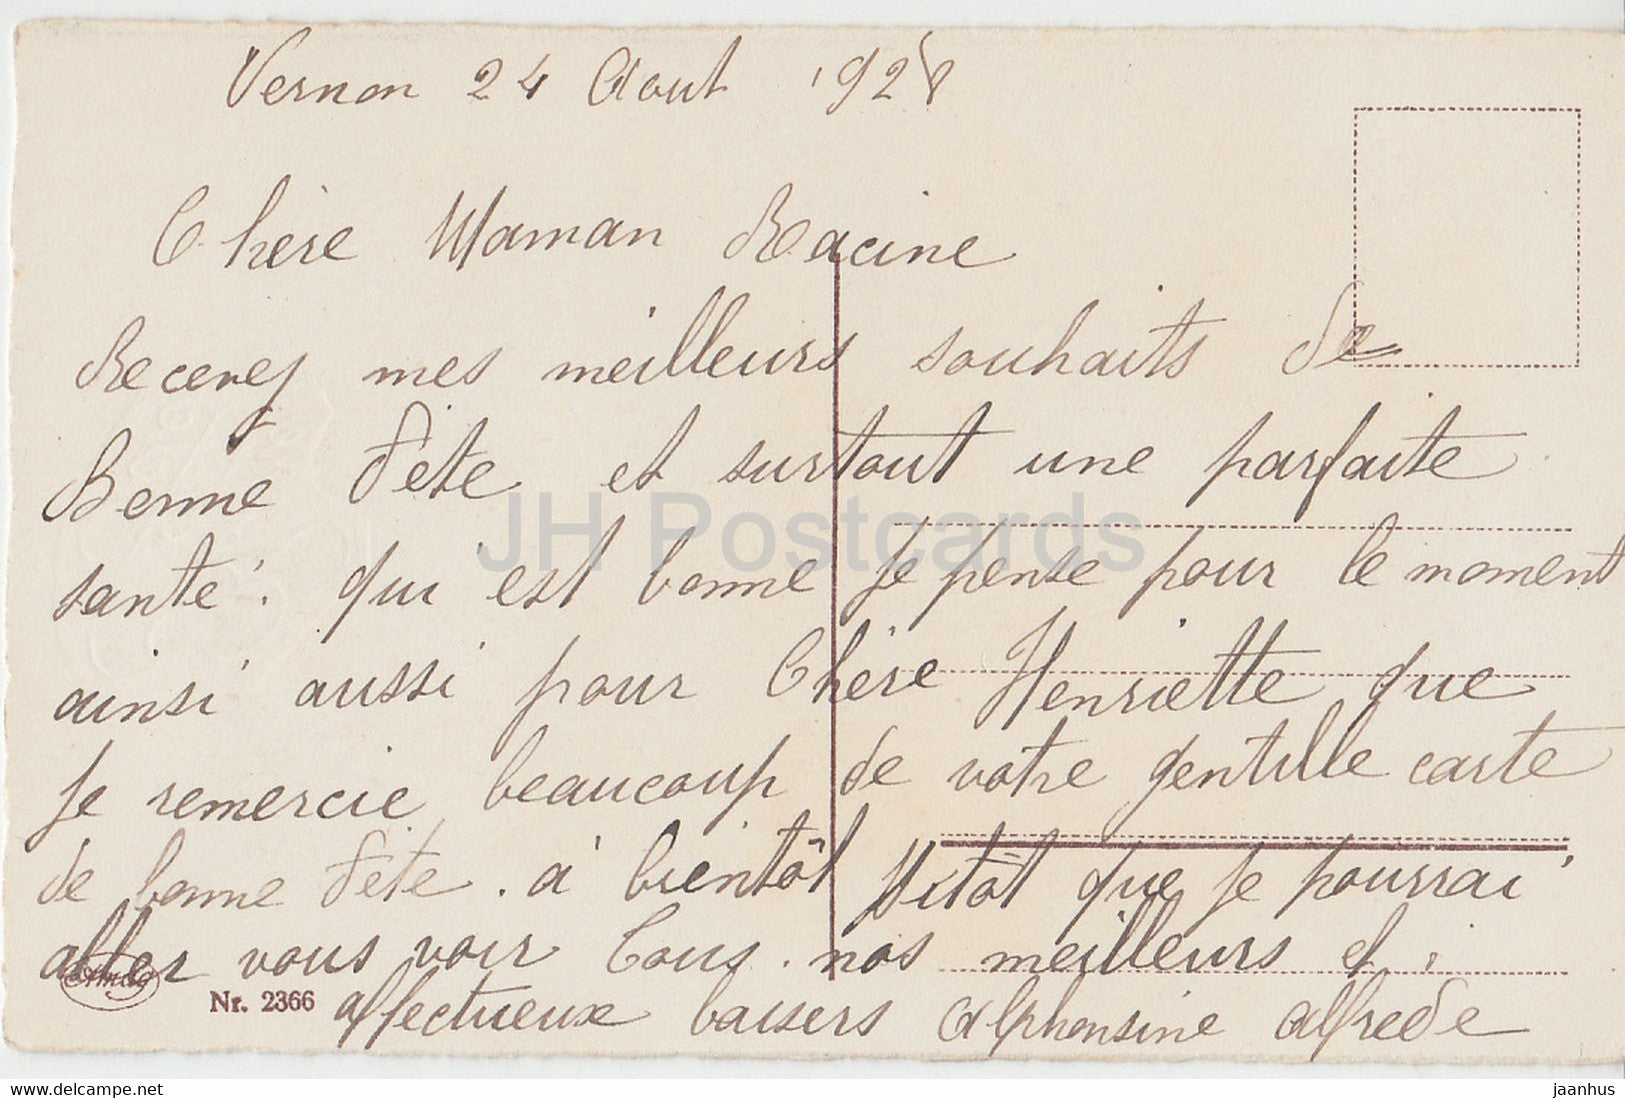 Vernon 24 Aout 1928
Chère Maman Racine
Recevez mes meilleurs souhaits de
Bonne Fête et surtout une parfaite
JH Postcards
santé. qui est bonne je pense pour le moment
ainsi aussi pour Chère Henriette que
je remercie beaucoup de votre gentille carte
de bonne fête. à bientôt sitôt que je pourrai
aller vous voir Tous. nos meilleurs et
Amag
Nr. 2366
affectueux baisers Alphonsine Alfrede
www.delcampe.net
jaanhus